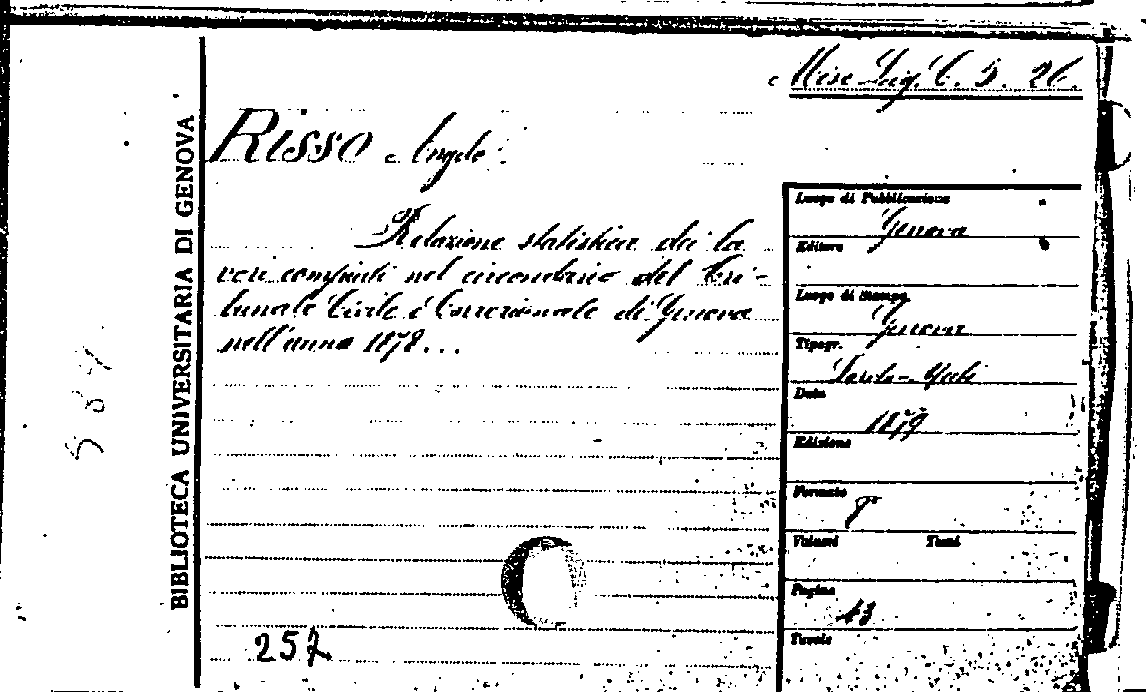 Misc. Lig. C. 5. 26.
BIBLIOTECA UNIVERSITARIA DI GENOVA
Risso Angelo.
Relazione statistica dei la
vori compiuti nel circondario del Tri-
bunale Civile è Correzionale di Genova
nell'anno 1878...
Luogo di Pubblicazione
Genova
Editore
Luogo di stampa
Genova
Tipogr.
Data
1879
Edizione
Formato
8°
Volumi Tomi
Pagine
43
Tavole
257